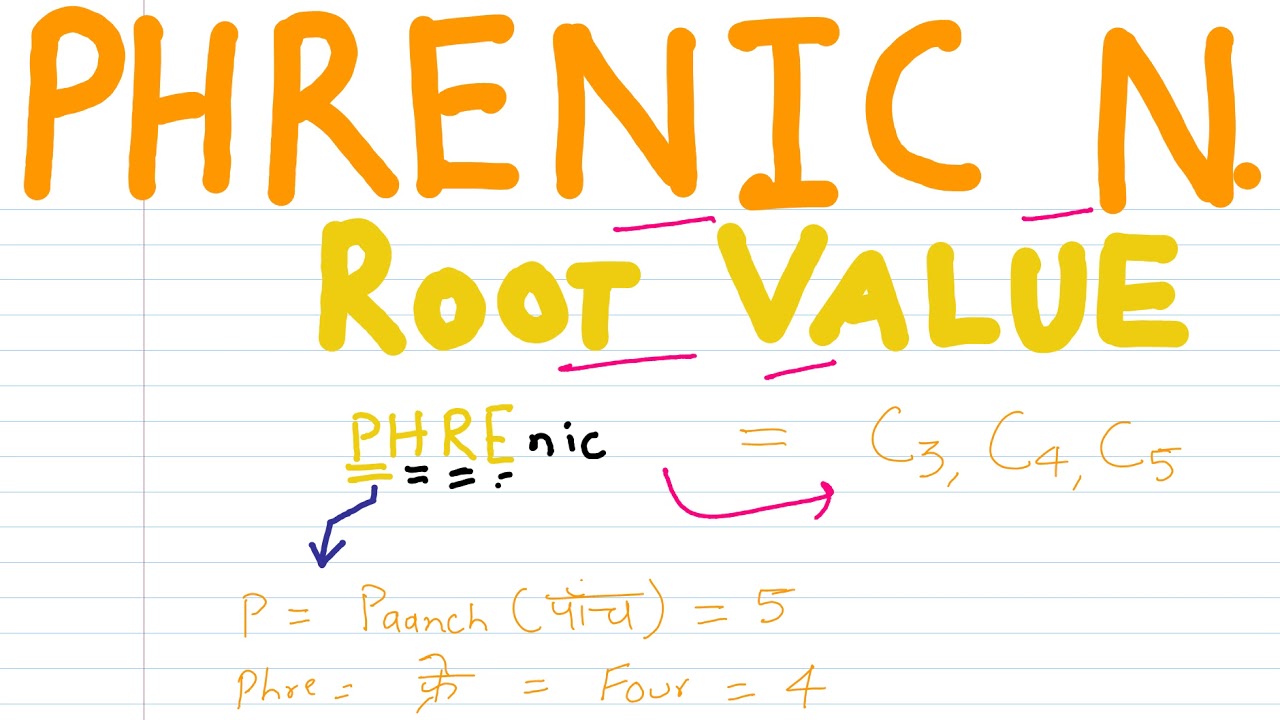 PHRENIC N.
ROOT VALUE
PHREnic = C3, C4, C5
P = Paanch (पांच) = 5
Phre = फ्रे = Four = 4